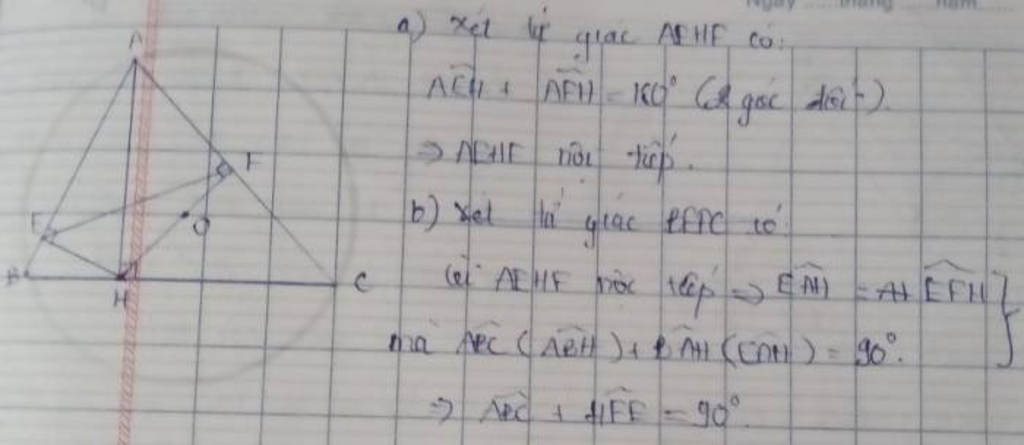 Ngày ..... tháng ..... năm .....
a) xét tứ giác AEHF có:
A
AEH + AFH = 180° (2 góc đối).
⇒ AEHF nội tiếp.
F
b) xét tứ giác BEFC có
E
O
B
C
H
AEHF nội tiếp ⇒ EAH = EFH
mà ABC (ABH) + BAH (EAH) = 90°.
⇒ ABC + HFE = 90°